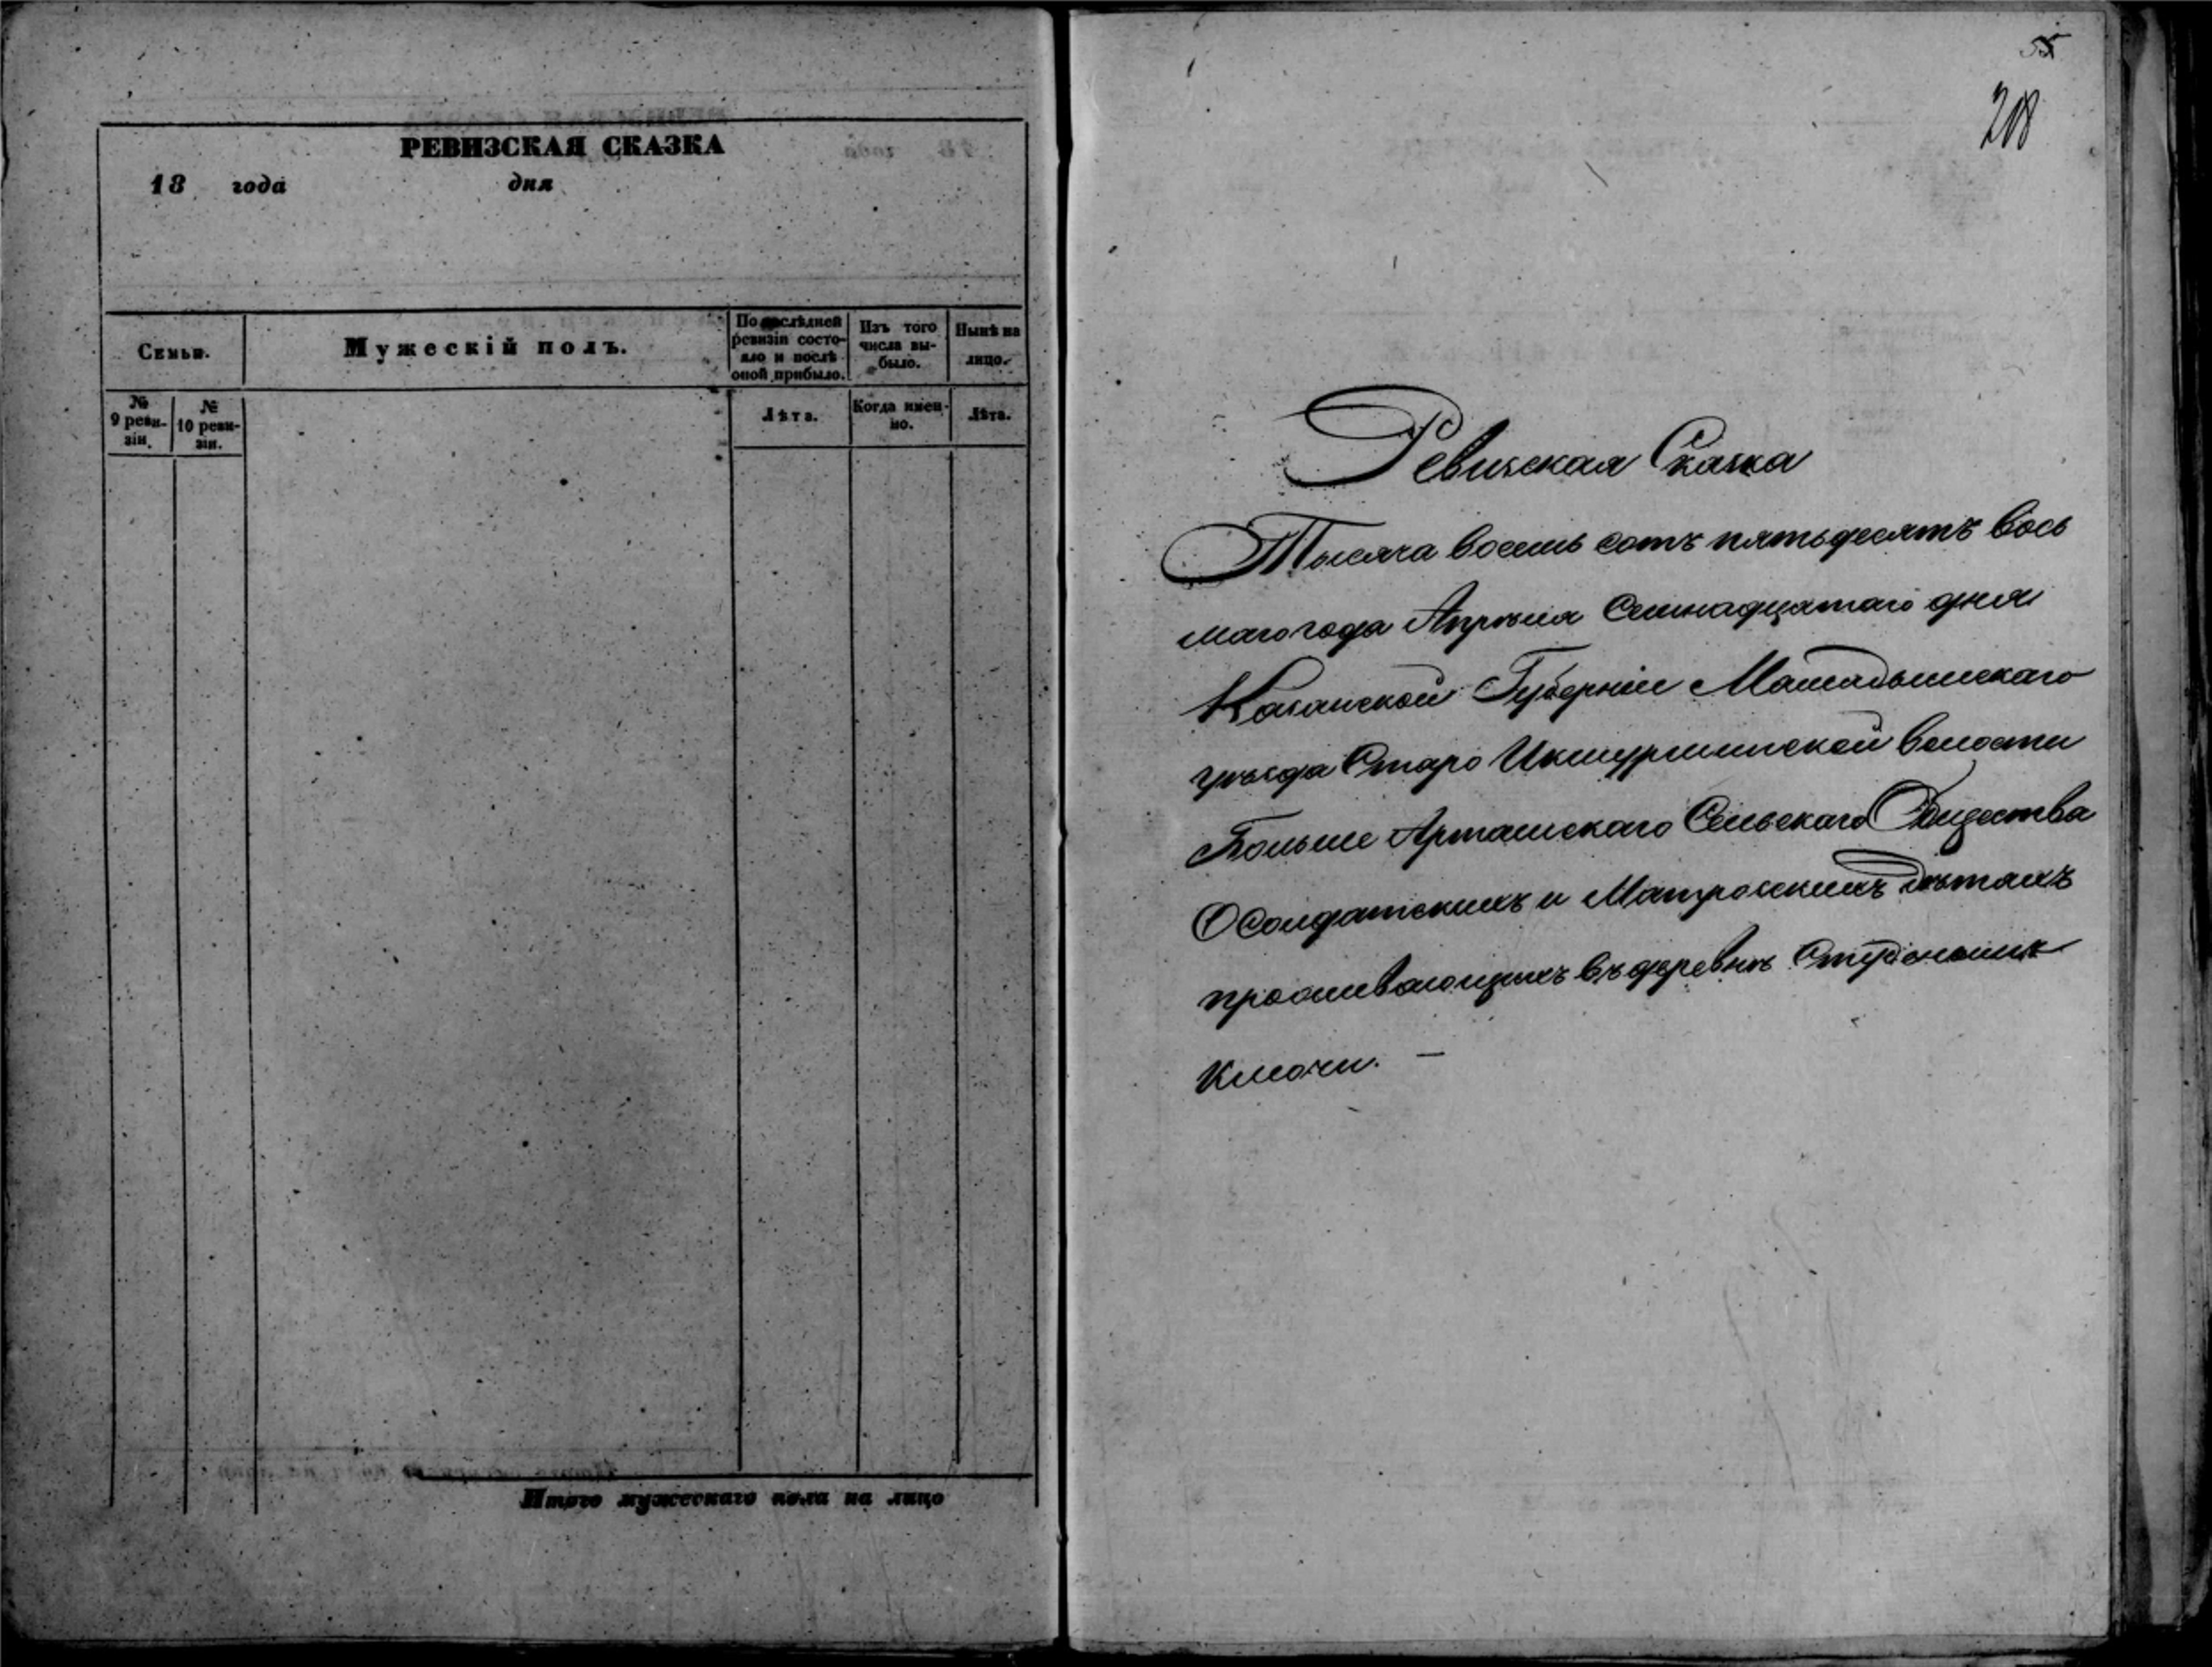 РЕВИЗСКАЯ СКАЗКА
18 года дня
Семьи.
Мужескій полъ.
По последней ревизіи состояло и послѣ оной прибыло.
Изъ того числа выбыло.
Нынѣ на лицо.
№ 9 ревизіи.
№ 10 ревизіи.
Лѣта.
Когда именно.
Лѣта.
Итого мужескаго пола на лицо
55
208
Ревизская Сказка
Тысяча восемь сотъ пятьдесятъ вось
маго года Апрѣля Семнадцатаго дня
Казанской Губерніи Мамадышскаго
уѣзда Старо Икшурминской волости
Больше Арташскаго Сельскаго Общества
О Солдатскихъ и Матросскихъ дѣтахъ
проживающихъ въ деревнѣ Студеныхъ
Ключи. —